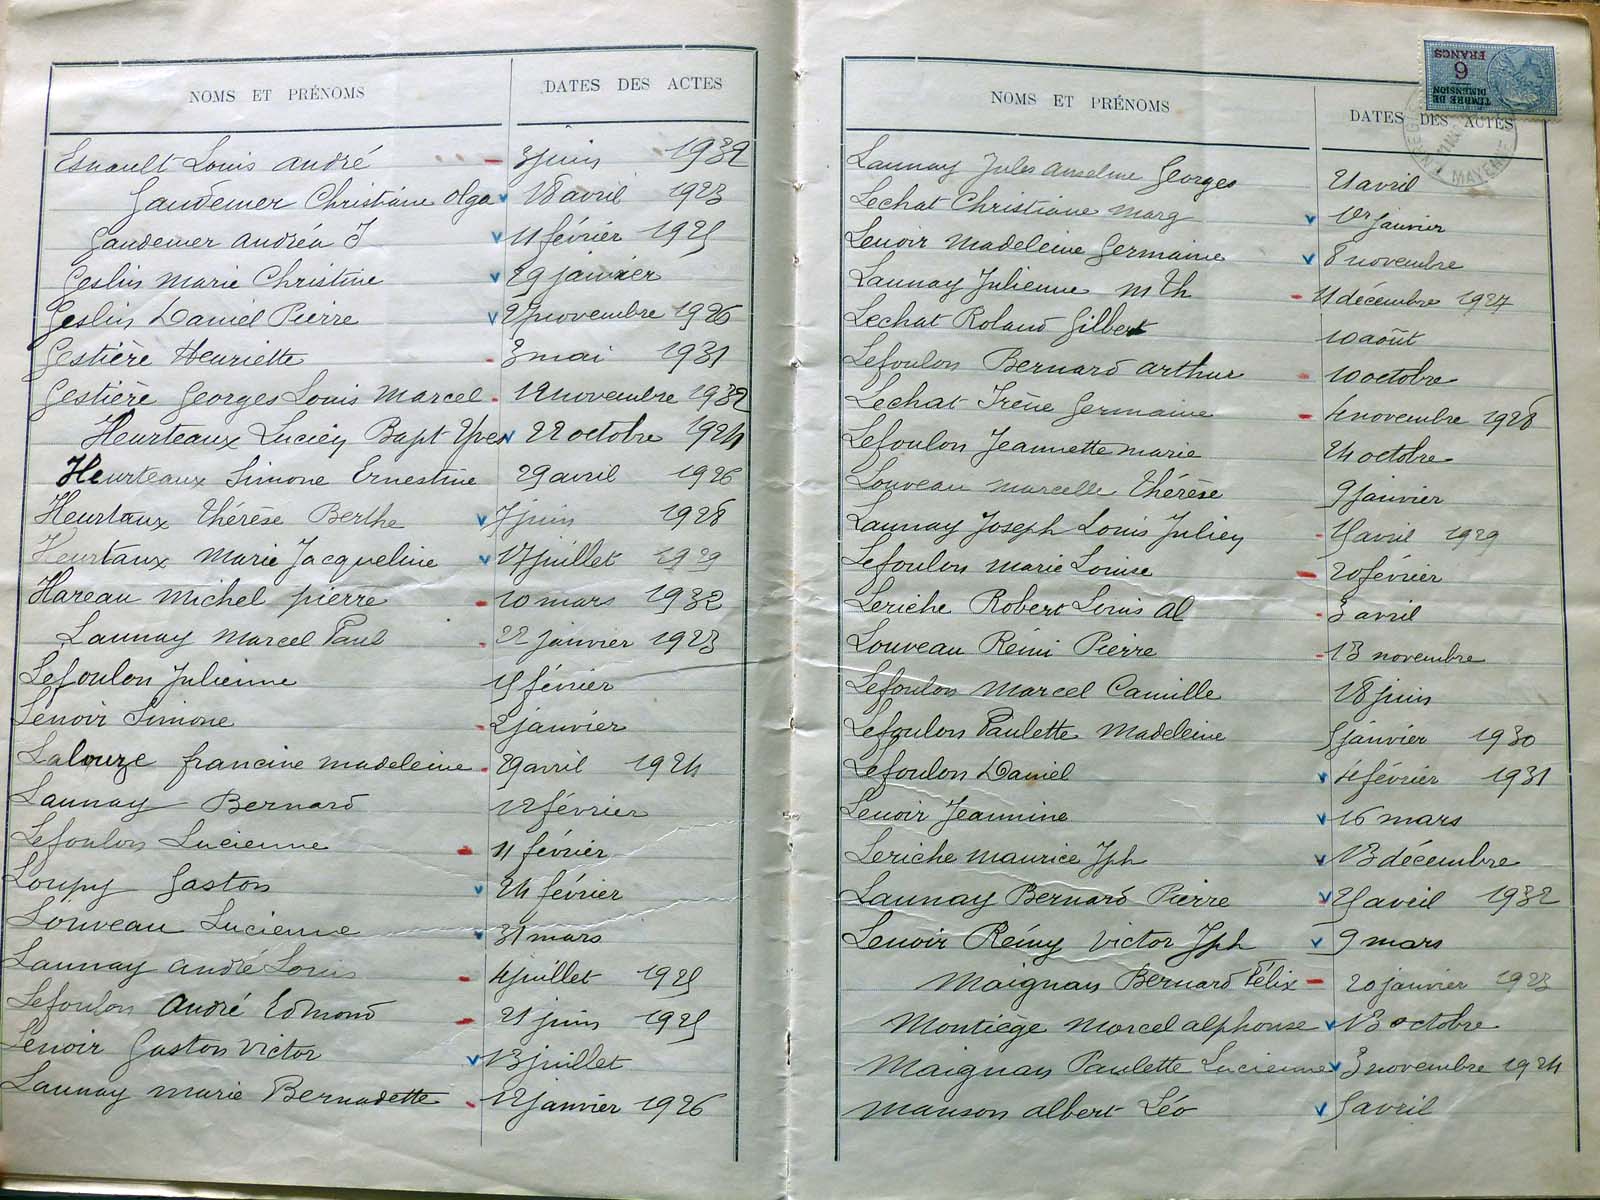 NOMS ET PRÉNOMS DATES DES ACTES
Esnault Louis André 3 juin 1932
Gaudemer Christiane Olga 18 avril 1923
Gaudemer Andréa J 11 février 1925
Geslin Marie Christine 29 janvier
Geslin Daniel Pierre 27 novembre 1926
Gestière Henriette 3 mai 1931
Gestière Georges Louis Marcel 12 novembre 1932
Heurteaux Lucien Bapt Yves 22 octobre 1924
Heurteaux Simone Ernestine 29 avril 1926
Heurtaux Thérèse Berthe 7 juin 1928
Heurtaux Marie Jacqueline 17 juillet 1929
Hareau Michel pierre 10 mars 1932
Launay Marcel Paul 22 janvier 1923
Lefoulon Julienne 15 février
Lenoir Simone 2 janvier
Lalouze francine madeleine 29 avril 1924
Launay Bernard 12 février
Lefoulon Lucienne 11 février
Loupy Gaston 24 février
Louveau Lucienne 31 mars
Launay André Louis 4 juillet 1925
Lefoulon André Edmond 21 juin 1925
Lenoir Gaston Victor 13 juillet
Launay marie Bernadette 12 janvier 1926
NOMS ET PRÉNOMS DATES DES ACTES
TIMBRE DE DIMENSION
6 FRANCS
MAYENNE
Launay Jules Anselme Georges 21 avril
Lechat Christiane Marg 1er janvier
Lenoir Madeleine Germaine 8 novembre
Launay Julienne M Th 11 décembre 1927
Lechat Roland Gilbert 10 août
Lefoulon Bernard Arthur 10 octobre
Lechat Irène Germaine 4 novembre 1928
Lefoulon Jeannette marie 24 octobre
Louveau Marcelle Thérèse 9 janvier
Launay Joseph Louis Julien 15 avril 1929
Lefoulon Marie Louise 20 février
Leriche Robert Louis Al 3 avril
Louveau Rémi Pierre 13 novembre
Lefoulon Marcel Camille 18 juin
Lefoulon Paulette Madeleine 5 janvier 1930
Lefoulon Daniel 4 février 1931
Lenoir Jeannine 16 mars
Leriche Maurice Jph 13 décembre
Launay Bernard Pierre 25 avril 1932
Lenoir Rémy Victor Jph 9 mars
Maignan Bernard Félix 20 janvier 1923
Montiège Marcel alphonse 13 octobre
Maignan Paulette Lucienne 3 novembre 1924
Manson albert Léo 5 avril